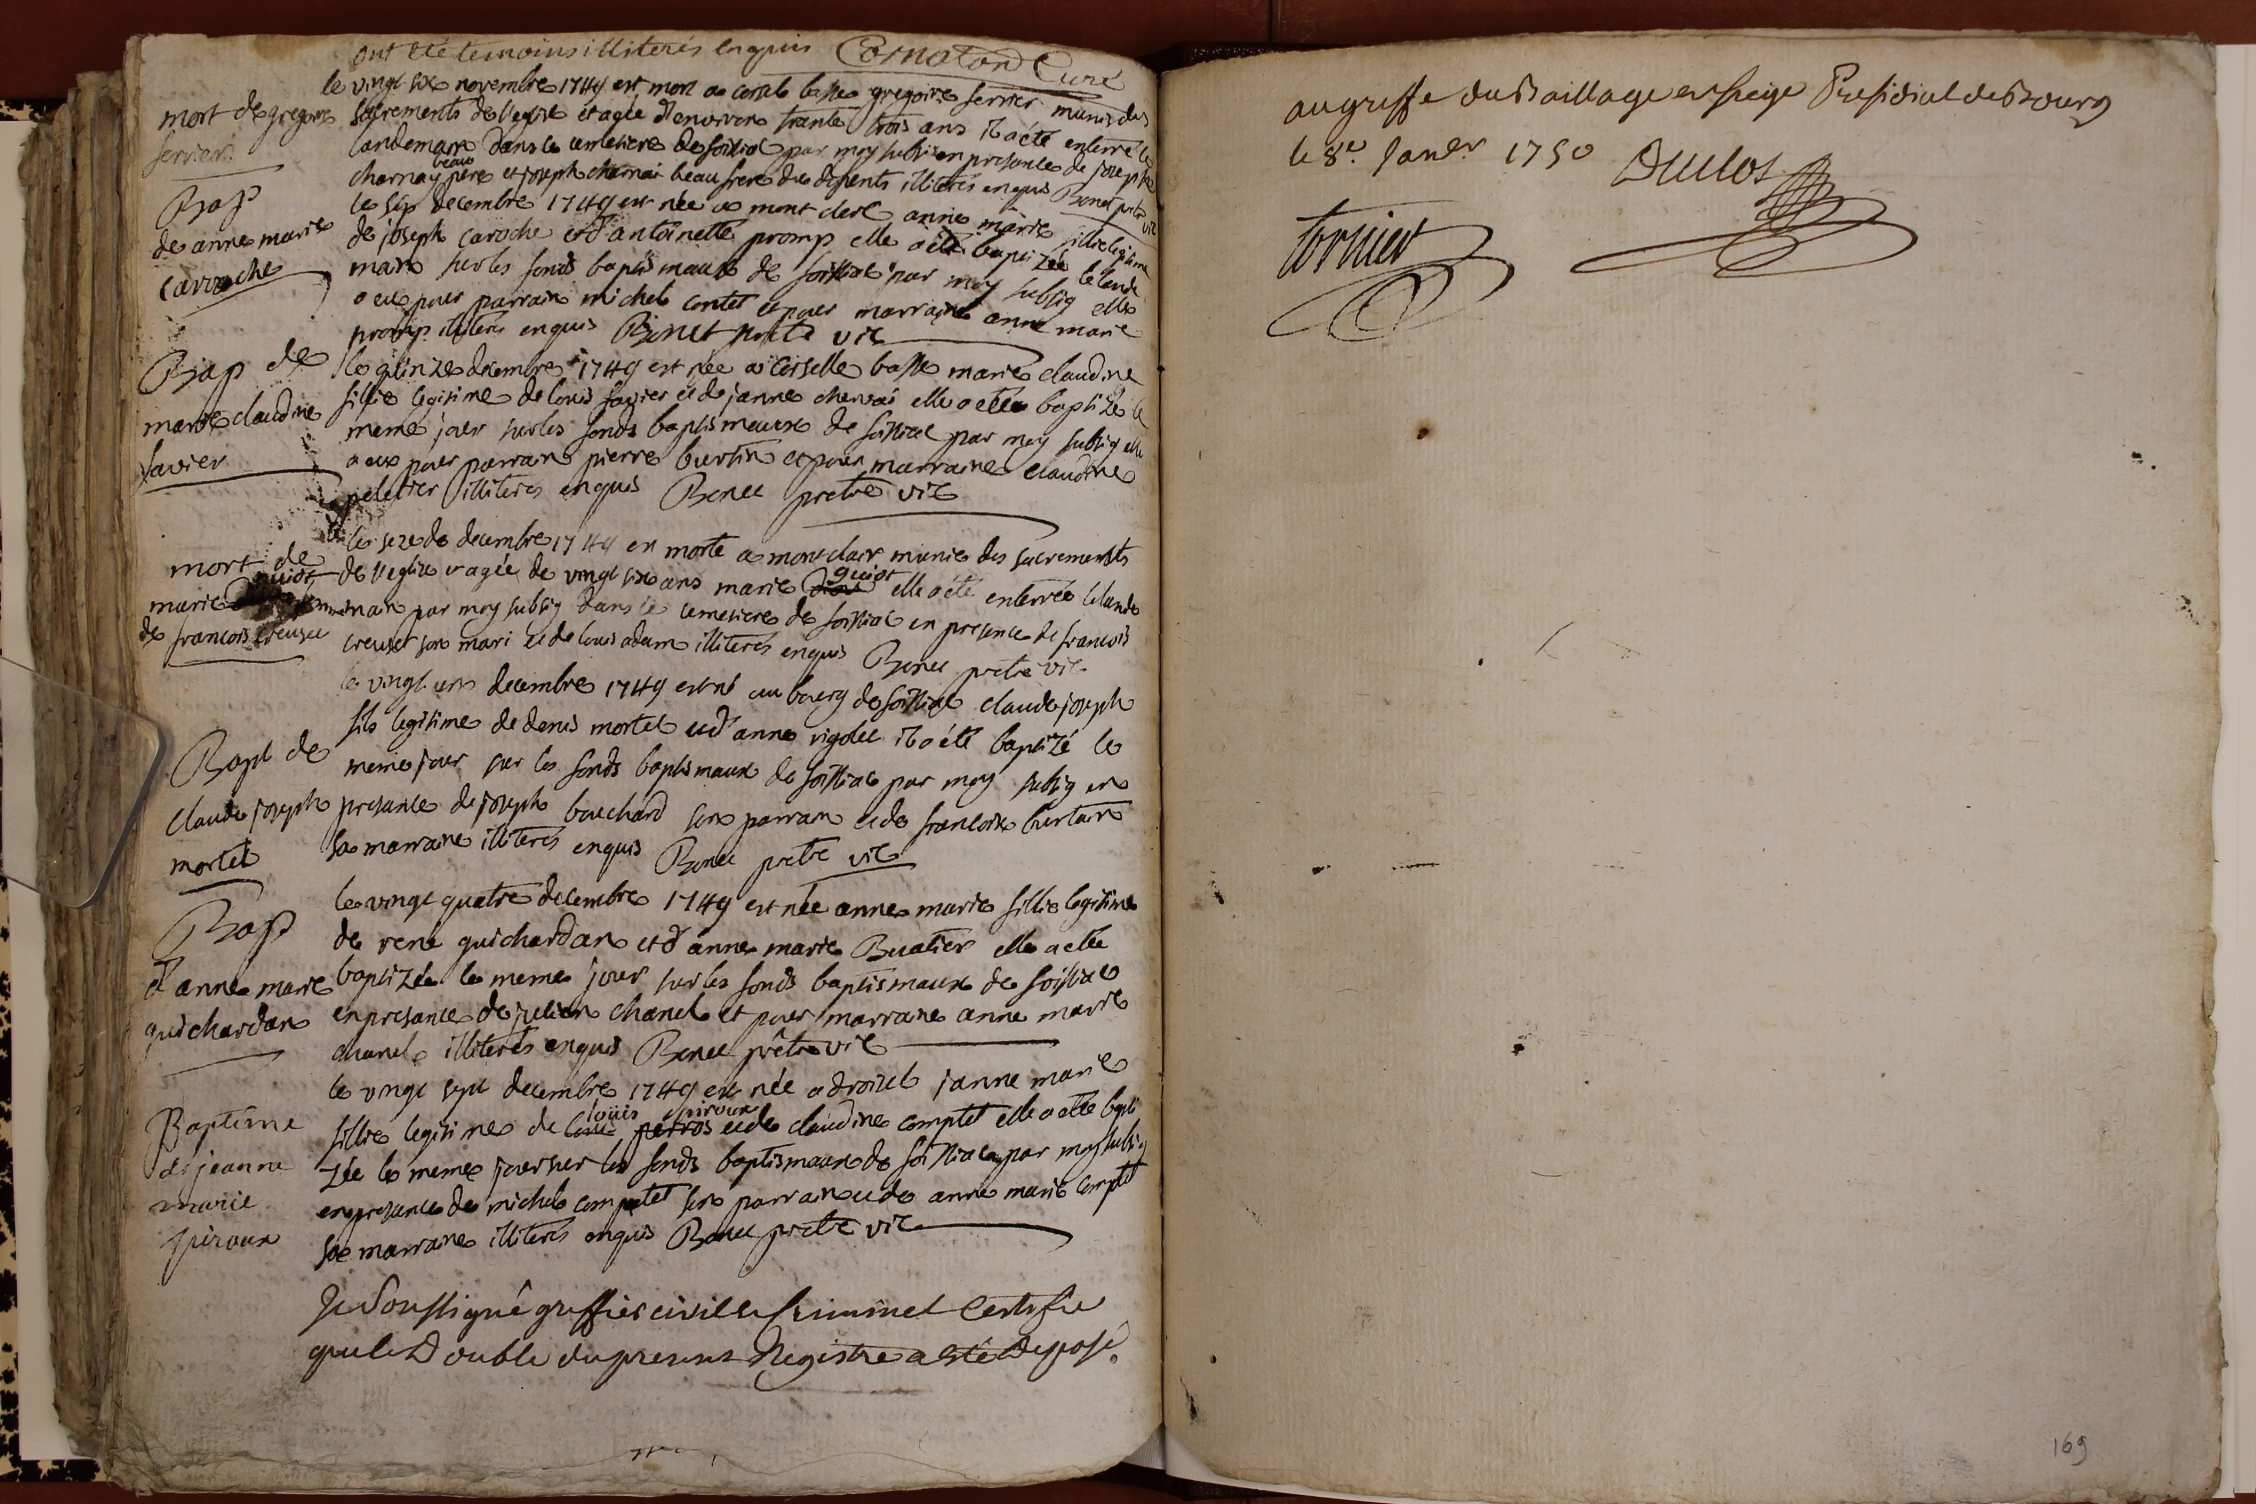 ont été temoins illiterés enquis Cornaton Curé
mort de gregoire
ferrier
le vingt six novembre 1749 est mort a corcele basse gregoire ferrier munis des
sacrements de l'eglise et agée d'environ trante trois ans il a été enterré le
landemain dans le cemetiere de foissiat par moy subsig en presance de joseph
charnay beau pere et joseph charnai beau frere du defunts illiterés enquis Benet pretre vic
Bap
de anne marie
carroche
le six decembre 1749 est née a mont clerc anne marie fillie legitime
de joseph caroche et d'antoinette promp elle a été baptizée le lande
main sur les fonds baptismaux de foissiat par moy subsig elle
a eu pour parrain michel contet et pour marraine anne marie
promp illiterés enquis Benet pretre vic
Bap de
marie claudine
favier
le quinze decembre 1749 est née a corselle basse marie claudine
fillie legitime de louis favier et de janne chervai elle a eté baptizé le
meme jour sur les fonds baptismaux de foissiat par moy subsig elle
a eu pour parrain pierre burtin et pour marraine claudine
peletier illiterés enquis Benet pretre vic
mort de
marie guiot femme
de francois creuset
le seze de decembre 1749 est morte a montclair munie des sacrements
de l'eglise et agée de vingt six ans marie guiot elle a été enterrée le lande
main par moy subsig dans le cemetiere de foissiat en presence de francois
creuset son mari et de louis adam illiterés enquis Benet pretre vic
Bapt de
claude joseph
mortel
le vingt un decembre 1749 est né au bourg de foissiat claude joseph
fils legitime de denis mortel et d'anne rigolet il a été baptizé le
meme jour sur les fonds baptismaux de foissiat par moy subsig en
presance de joseph bouchard son parrain et de francoise burtain
sa marraine illiterés enquis Benet pretre vic
Bap
d'anne marie
guichardan
le vingt quatre decembre 1749 est née anne marie fillie legitime
de rené guichardan et d'anne marie Buatier elle a etée
baptizée le meme jour sur les fonds baptismaux de foissiat
en presance de julien chanel et pour marraine anne marie
chanel illiterés enquis Benet prêtre vic
Baptême
de jeanne
marie
piroux
le vingt sept decembre 1749 est née a droizet janne marie
fillie legitime de louis louis piroux perros et de claudine comptet elle a etée bapti
zée le meme jour sur les fonds baptismaux de foissiat par moy subsig
en presance de michel comptet son parrain et de anne marie comptet
sa marraine illiterés enquis Benet pretre vic
Je Soussigné greffier civil et criminel Certifie
que le Double du present Registre a eté deposé
au greffe du Baillage et siege Presidial de Bourg
le 8e. Janer. 1750 Duclos
tornier
169